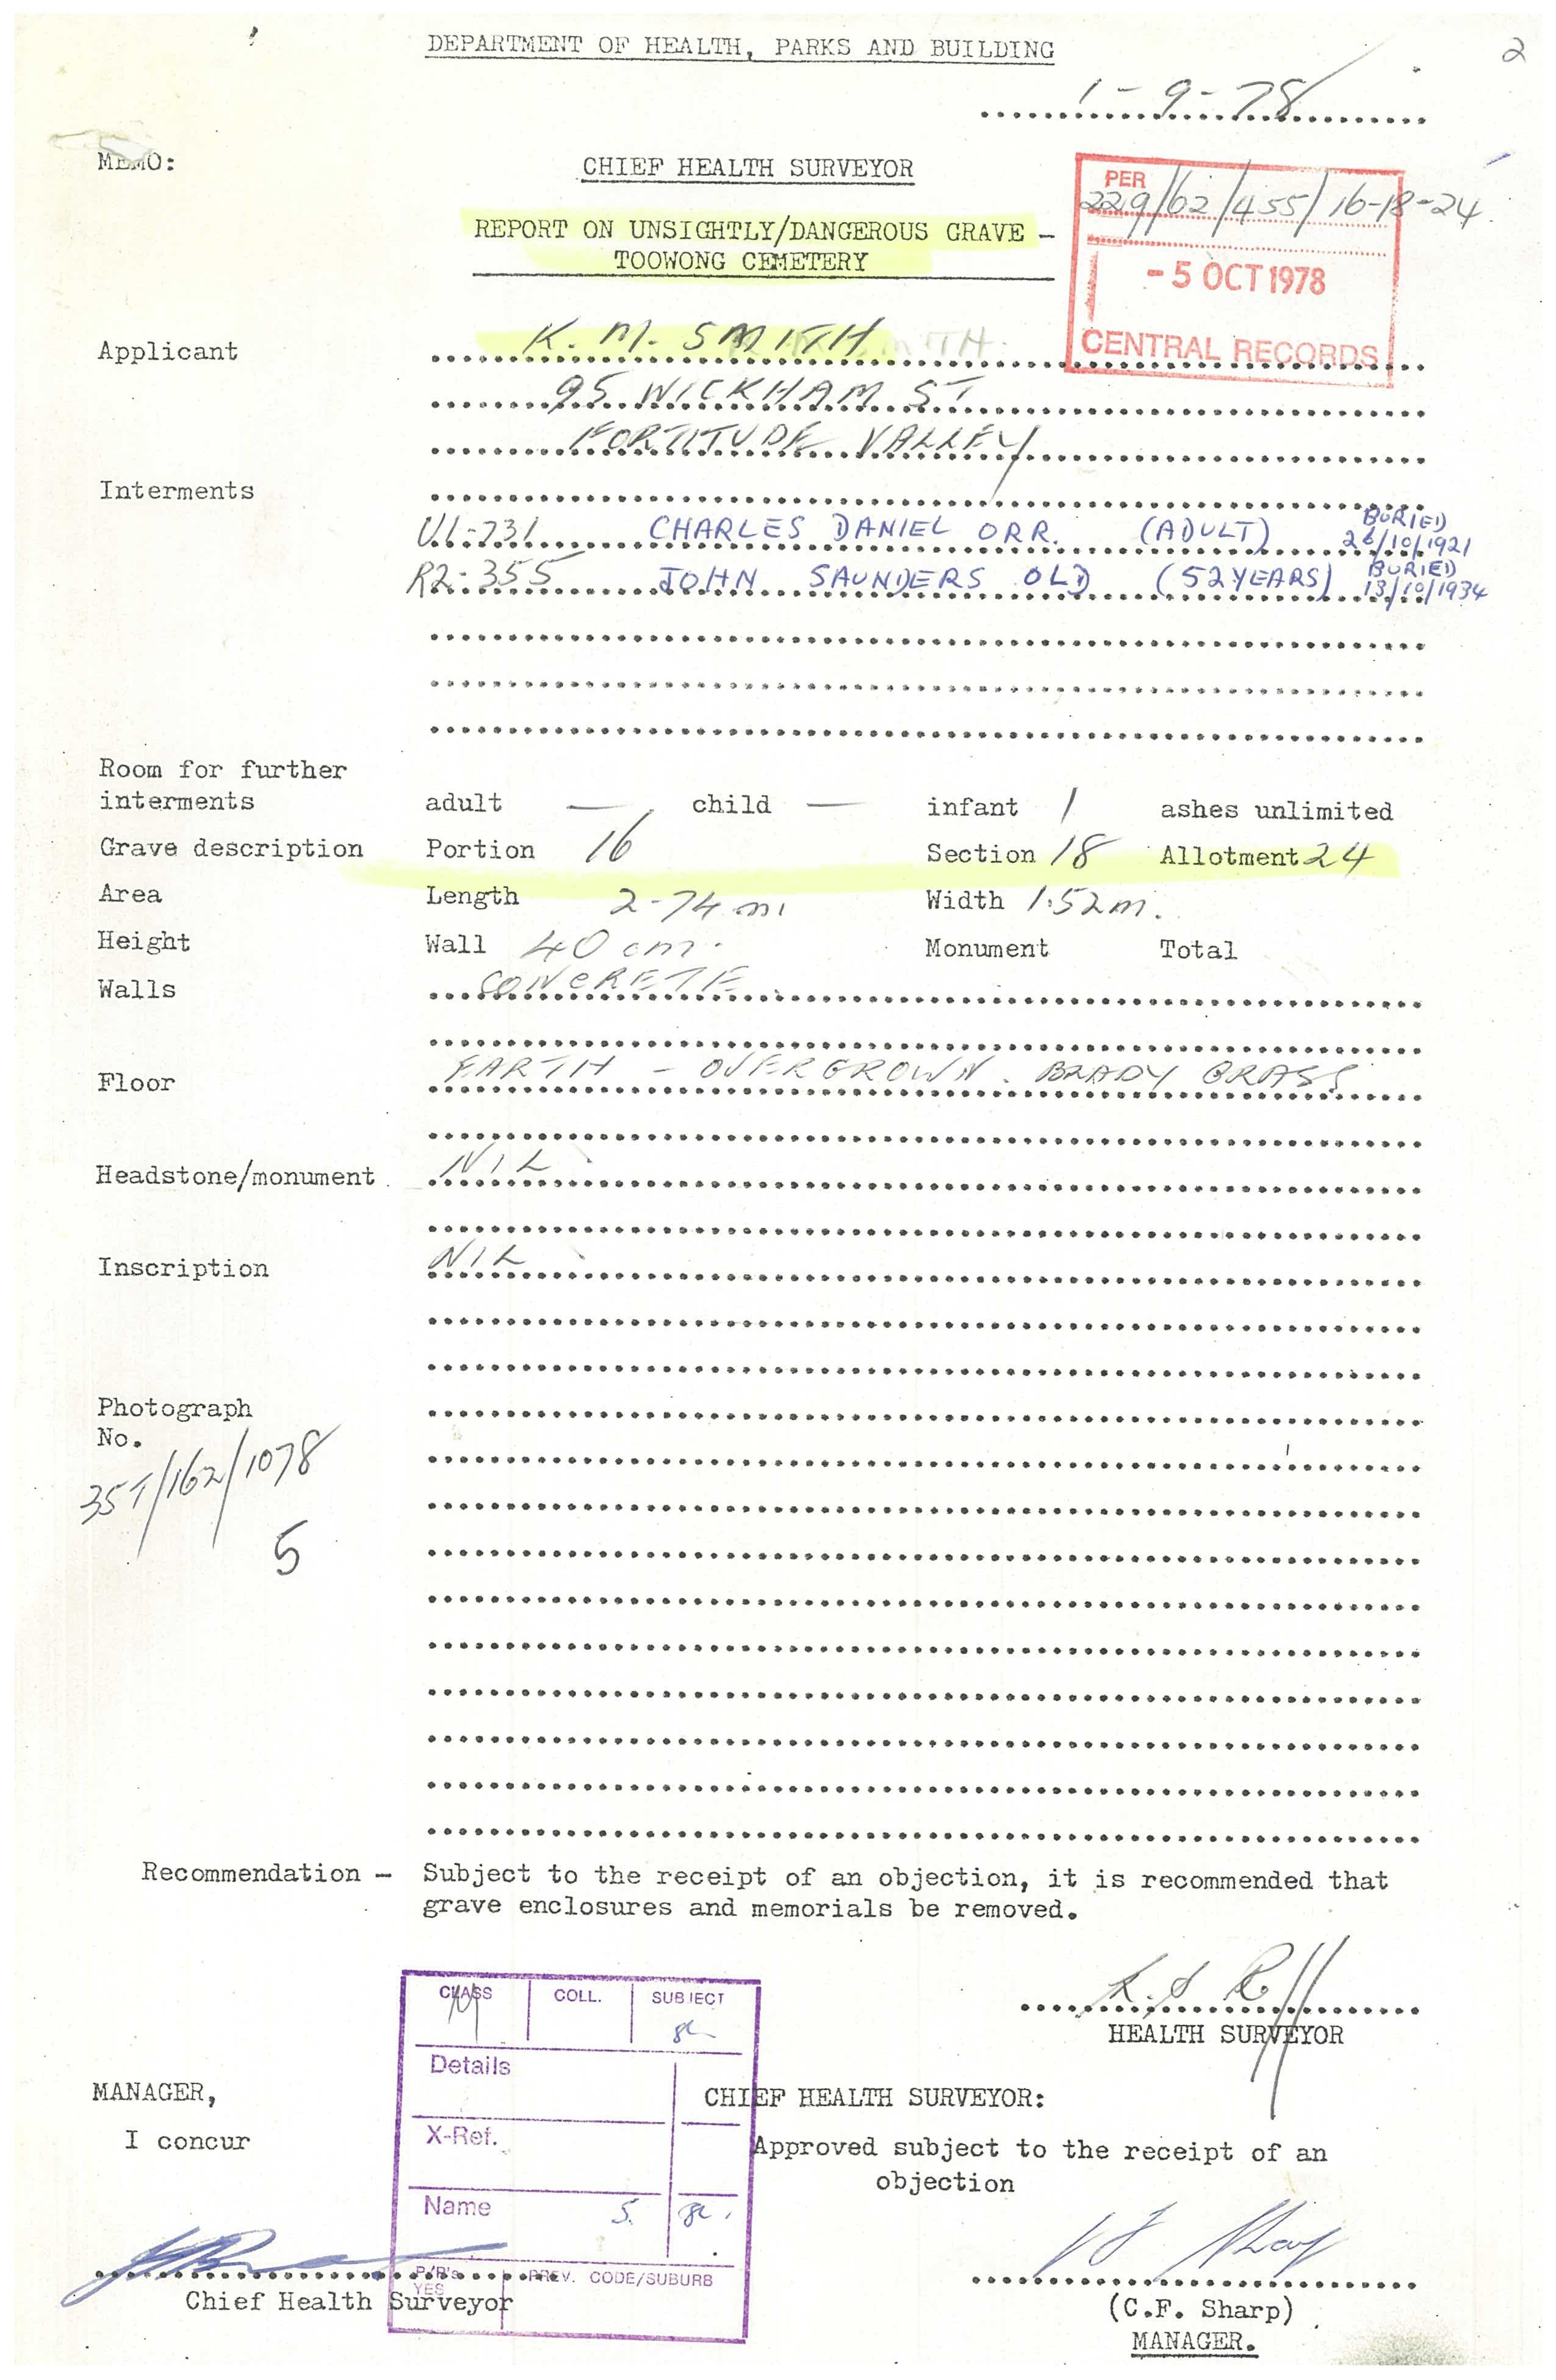 2
DEPARTMENT OF HEALTH, PARKS AND BUILDING
1-9-78
MEMO:
CHIEF HEALTH SURVEYOR
PER
229/62/455/16-18-24
REPORT ON UNSIGHTLY/DANGEROUS GRAVE -
TOOWONG CEMETERY
- 5 OCT 1978
CENTRAL RECORDS
Applicant K. M. SMITH
95 WICKHAM ST
FORTITUDE VALLEY
Interments
U1-731 CHARLES DANIEL ORR. (ADULT) BURIED 26/10/1921
R2-355 JOHN SAUNDERS OLD (52 YEARS) BURIED 13/10/1934
Room for further
interments adult — child — infant 1 ashes unlimited
Grave description Portion 16 Section 18 Allotment 24
Area Length 2-74 m Width 1.52m.
Height Wall 40 cm. Monument Total
Walls CONCRETE
Floor EARTH - OVERGROWN. BLADY GRASS
Headstone/monument NIL
Inscription NIL
Photograph
No.
351/162/1078
5
Recommendation - Subject to the receipt of an objection, it is recommended that
grave enclosures and memorials be removed.
HEALTH SURVEYOR
CLASS COLL. SUBJECT
Details
X-Ref.
Name 5.
P/R's PREV. CODE/SUBURB
YES
MANAGER,
I concur
Chief Health Surveyor
CHIEF HEALTH SURVEYOR:
Approved subject to the receipt of an
objection
(C.F. Sharp)
MANAGER.